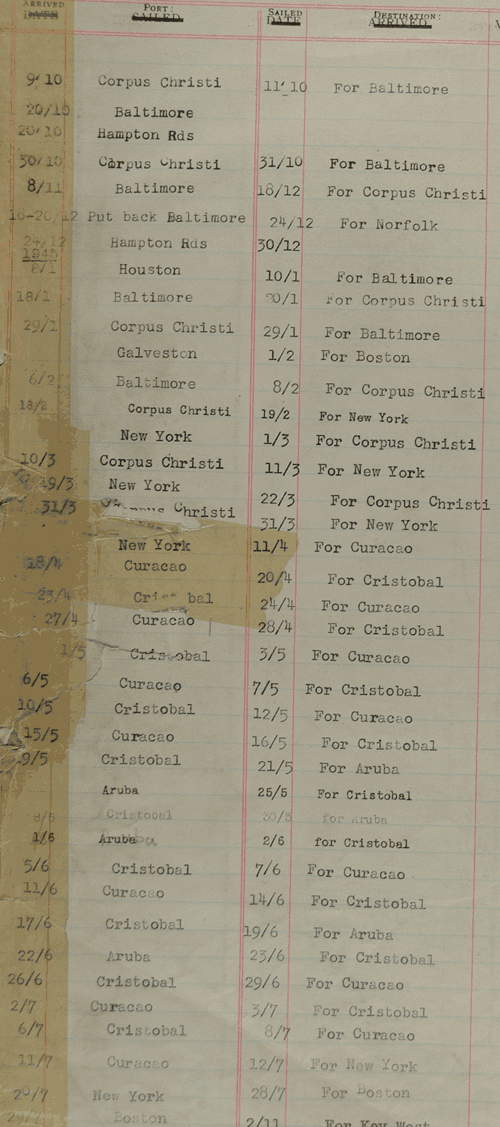 ARRIVED DATE PORT: SAILED SAILED DATE DESTINATION: ARRIVED
9/10 Corpus Christi 11/10 For Baltimore
20/10 Baltimore
20/10 Hampton Rds
30/10 Corpus Christi 31/10 For Baltimore
8/11 Baltimore 18/12 For Corpus Christi
18-20/12 Put back Baltimore 24/12 For Norfolk
24/12 Hampton Rds 30/12
1945
8/1 Houston 10/1 For Baltimore
18/1 Baltimore 20/1 For Corpus Christi
29/1 Corpus Christi 29/1 For Baltimore
Galveston 1/2 For Boston
6/2 Baltimore 8/2 For Corpus Christi
18/2 Corpus Christi 19/2 For New York
New York 1/3 For Corpus Christi
10/3 Corpus Christi 11/3 For New York
19/3 New York 22/3 For Corpus Christi
31/3 Christi 31/3 For New York
New York 11/4 For Curacao
18/4 Curacao 20/4 For Cristobal
23/4 Cristobal 24/4 For Curacao
27/4 Curacao 28/4 For Cristobal
1/5 Cristobal 3/5 For Curacao
6/5 Curacao 7/5 For Cristobal
10/5 Cristobal 12/5 For Curacao
15/5 Curacao 16/5 For Cristobal
9/5 Cristobal 21/5 For Aruba
Aruba 25/5 For Cristobal
8/5 Cristobal 30/5 for Aruba
1/6 Aruba 2/6 for Cristobal
5/6 Cristobal 7/6 For Curacao
11/6 Curacao 14/6 For Cristobal
17/6 Cristobal 19/6 For Aruba
22/6 Aruba 23/6 For Cristobal
26/6 Cristobal 29/6 For Curacao
2/7 Curacao 3/7 For Cristobal
6/7 Cristobal 8/7 For Curacao
11/7 Curacao 12/7 For New York
20/7 New York 28/7 For Boston
29/7 Boston 2/11 For Key West